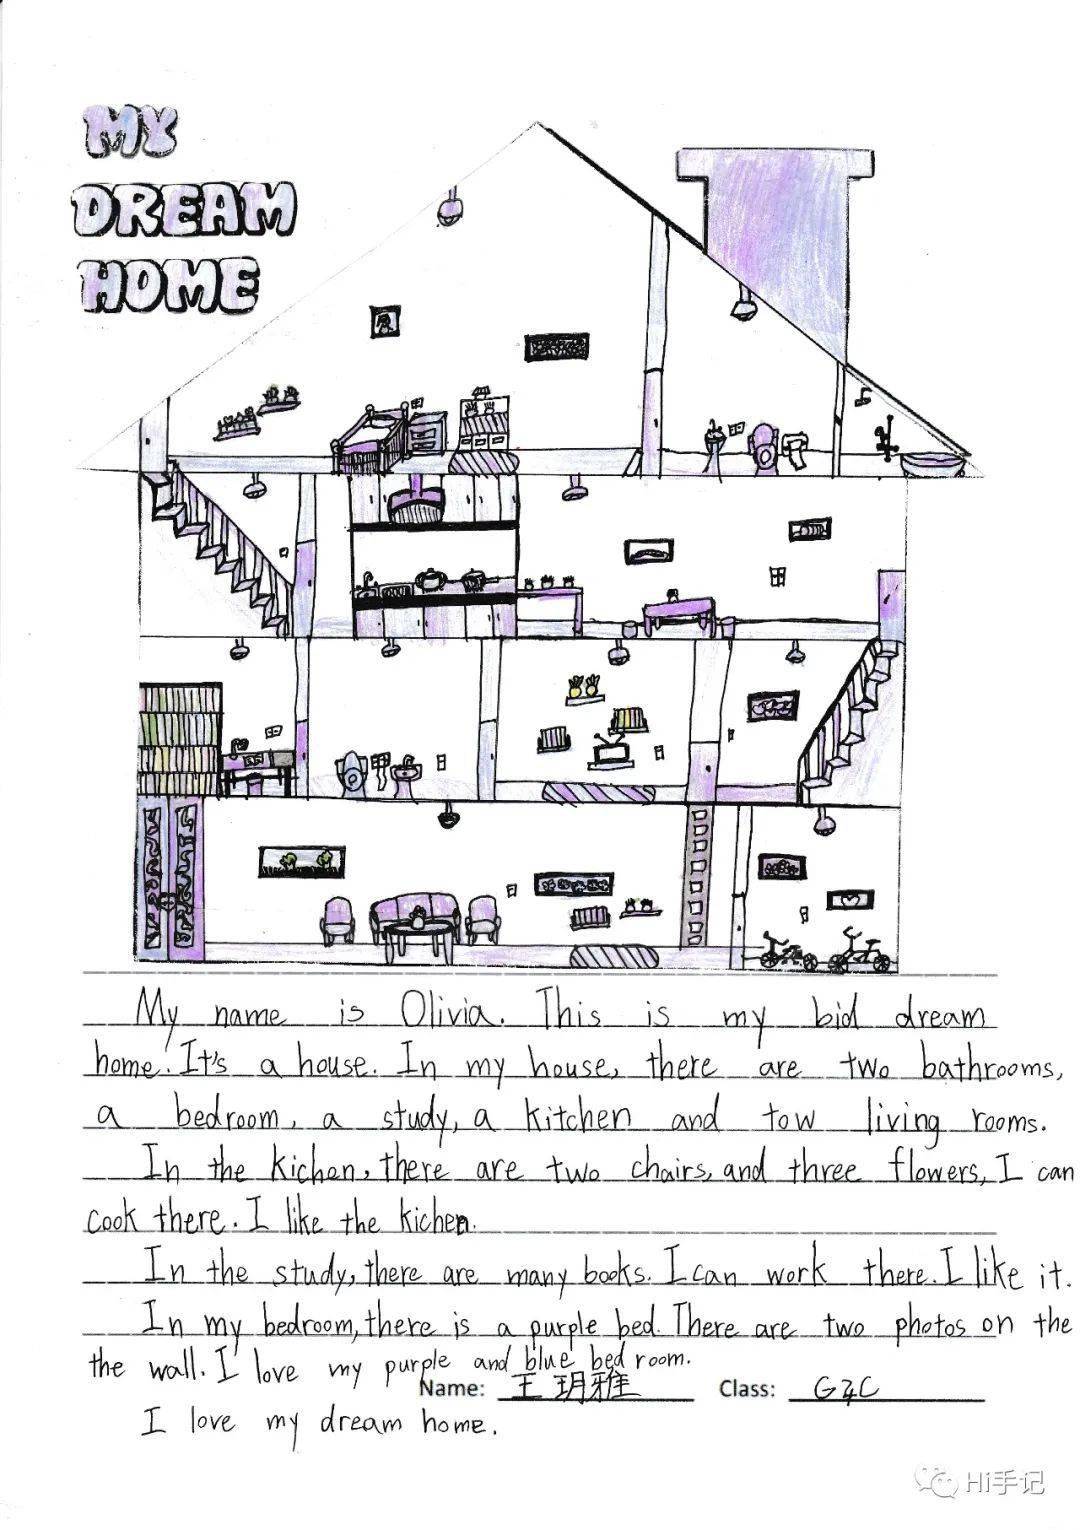 MY
DREAM
HOME
My name is Olivia. This is my bid dream
home. It's a house. In my house, there are two bathrooms,
a bedroom, a study, a kitchen and tow living rooms.
In the kichen, there are two chairs, and three flowers, I can
cook there. I like the kichen.
In the study, there are many books. I can work there. I like it.
In my bedroom, there is a purple bed. There are two photos on the
the wall. I love my purple and blue bed room.
Name: 王玥雅 Class: G4C
I love my dream home.
Hi手记